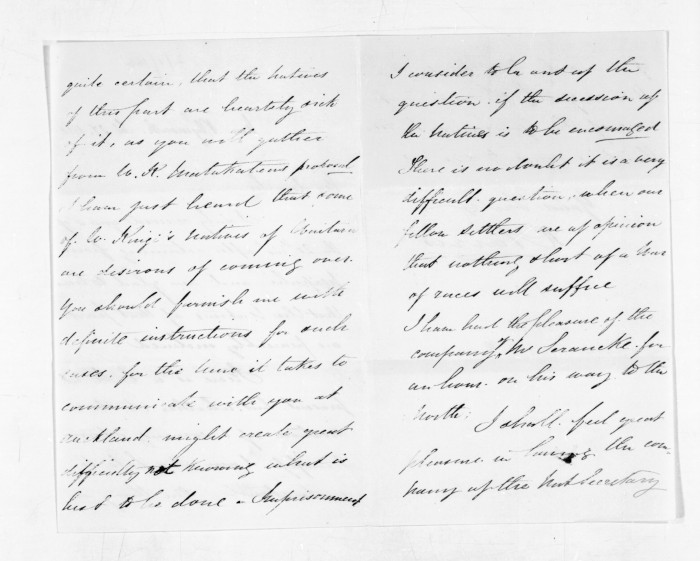 quite certain, that the Natives
of this part are heartily sick
of it, as you will gather
from W. K. Matakatea's proposal
I have just heard that some
of W. King's natives of
are desirous of coming over.
You should furnish me with
definite instructions for such
cases. for the time it takes to
communicate with you at
Auckland. might create great
difficulty not knowing what is
best to be done - Imprisonment
I consider to be out of the
question. if the secession of
the Natives is to be encouraged
There is no doubt it is a very
difficult question, when our
fellow settlers are of opinion
that nothing short of a War
of races will suffice
I have had the pleasure of the
company of Mr for
an hour. on his way to the
North:
I shall feel great
pleasure in having the com-
pany of the Nat Secretary